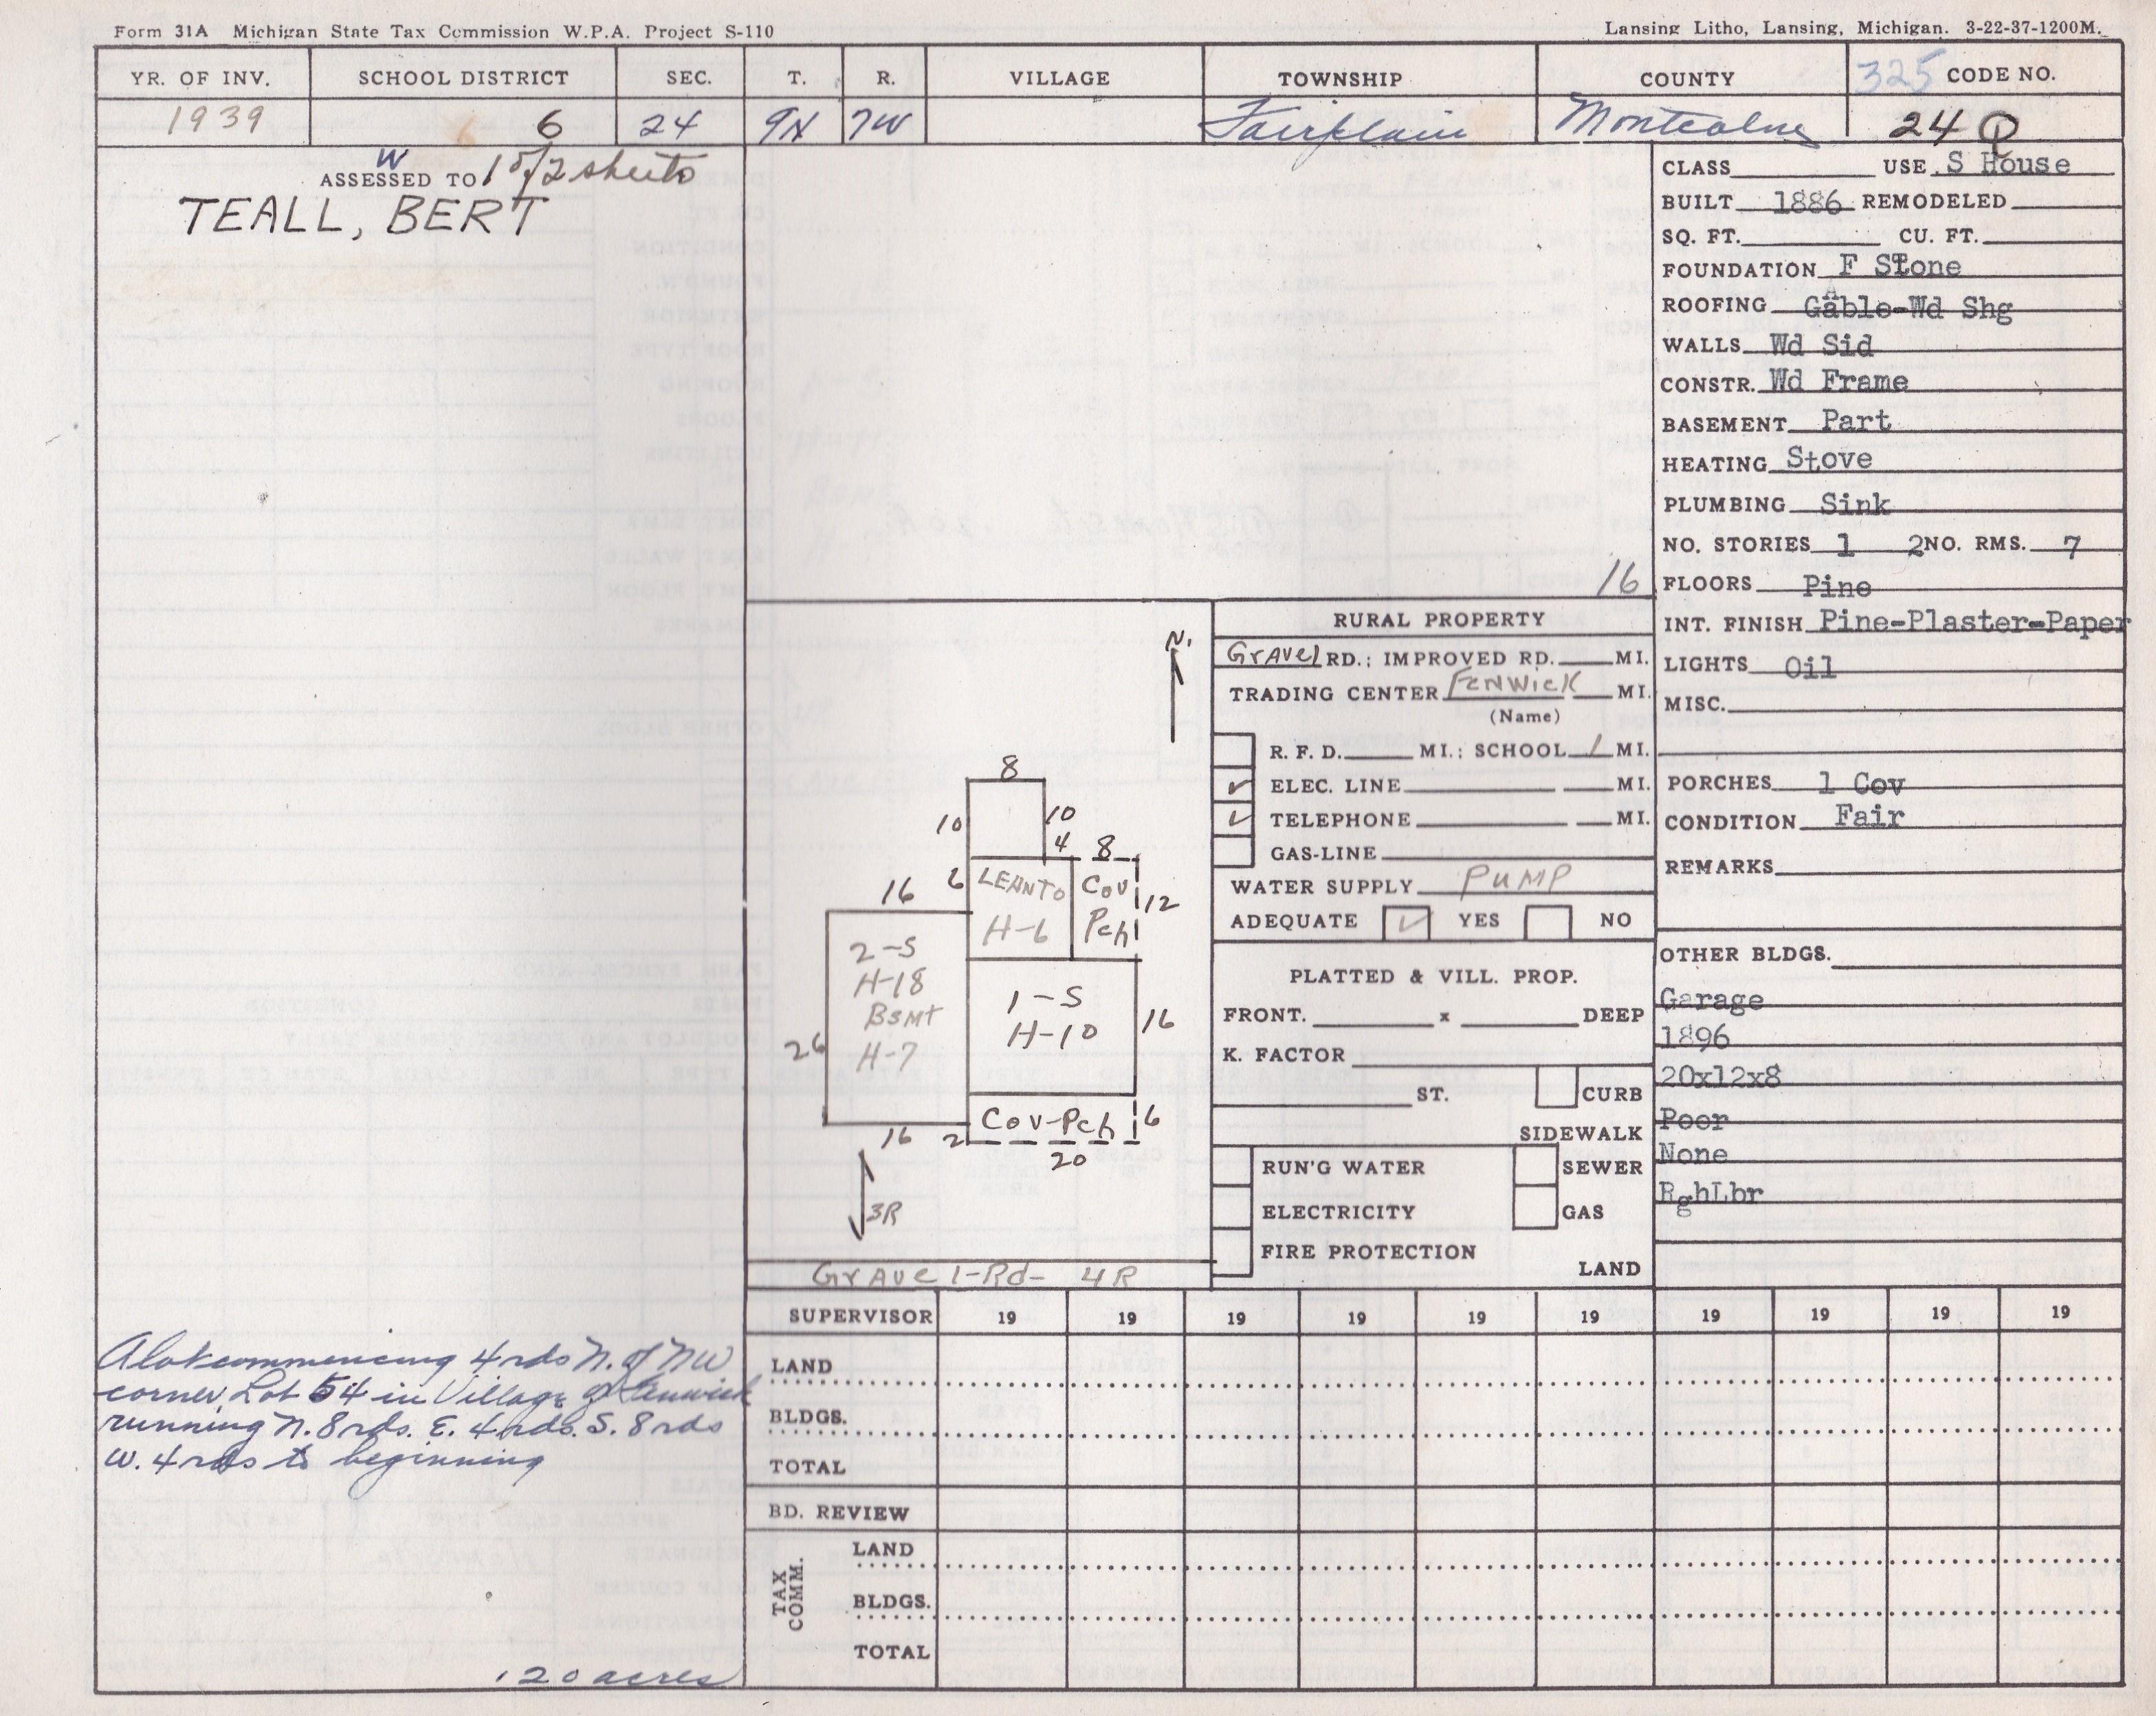 Form 31A Michigan State Tax Commission W.P.A. Project S-110
Lansing Litho, Lansing, Michigan. 3-22-37-1200M.
YR. OF INV. SCHOOL DISTRICT SEC. T. R. VILLAGE TOWNSHIP COUNTY 325 CODE NO.
1939 6 6 24 9N 7W Fairplain Montcalm 24 Q
W
ASSESSED TO 1 of 2 sheets
TEALL, BERT
CLASS USE S House
BUILT 1886 REMODELED
SQ. FT. CU. FT.
FOUNDATION F Stone
ROOFING Gable-Wd Shg
WALLS Wd Sid
CONSTR. Wd Frame
BASEMENT Part
HEATING Stove
PLUMBING Sink
NO. STORIES 1 2 NO. RMS. 7
16
FLOORS Pine
INT. FINISH Pine-Plaster-Paper
LIGHTS Oil
MISC.
PORCHES 1 Cov
CONDITION Fair
REMARKS
OTHER BLDGS.
Garage
1896
20x12x8
Poor
None
RghLbr
RURAL PROPERTY
Gravel RD.; IMPROVED RD. MI.
TRADING CENTER Fenwick MI.
(Name)
R. F. D. MI.; SCHOOL 1 MI.
✓ ELEC. LINE MI.
✓ TELEPHONE MI.
GAS-LINE
WATER SUPPLY PUMP
ADEQUATE ✓ YES NO
PLATTED & VILL. PROP.
FRONT. x DEEP
K. FACTOR
ST. CURB
SIDEWALK
RUN'G WATER SEWER
ELECTRICITY GAS
FIRE PROTECTION
LAND
N.
8
10 10
4 8
16 6 LEANTO Cov 12
H-6 Pch
2-S
H-18
Bsmt
H-7
26
1-S
H-10
16
Cov-Pch 6
16 2
20
3R
Gravel-Rd- 4R
SUPERVISOR 19 19 19 19 19 19 19 19 19 19
LAND
BLDGS.
TOTAL
BD. REVIEW
TAX COMM.
LAND
BLDGS.
TOTAL
A lot commencing 4 rds N. of NW
corner Lot 54 in Village of Fenwick
running N. 8 rds. E. 4 rds. S. 8 rds
W. 4 rds to beginning
.20 acres